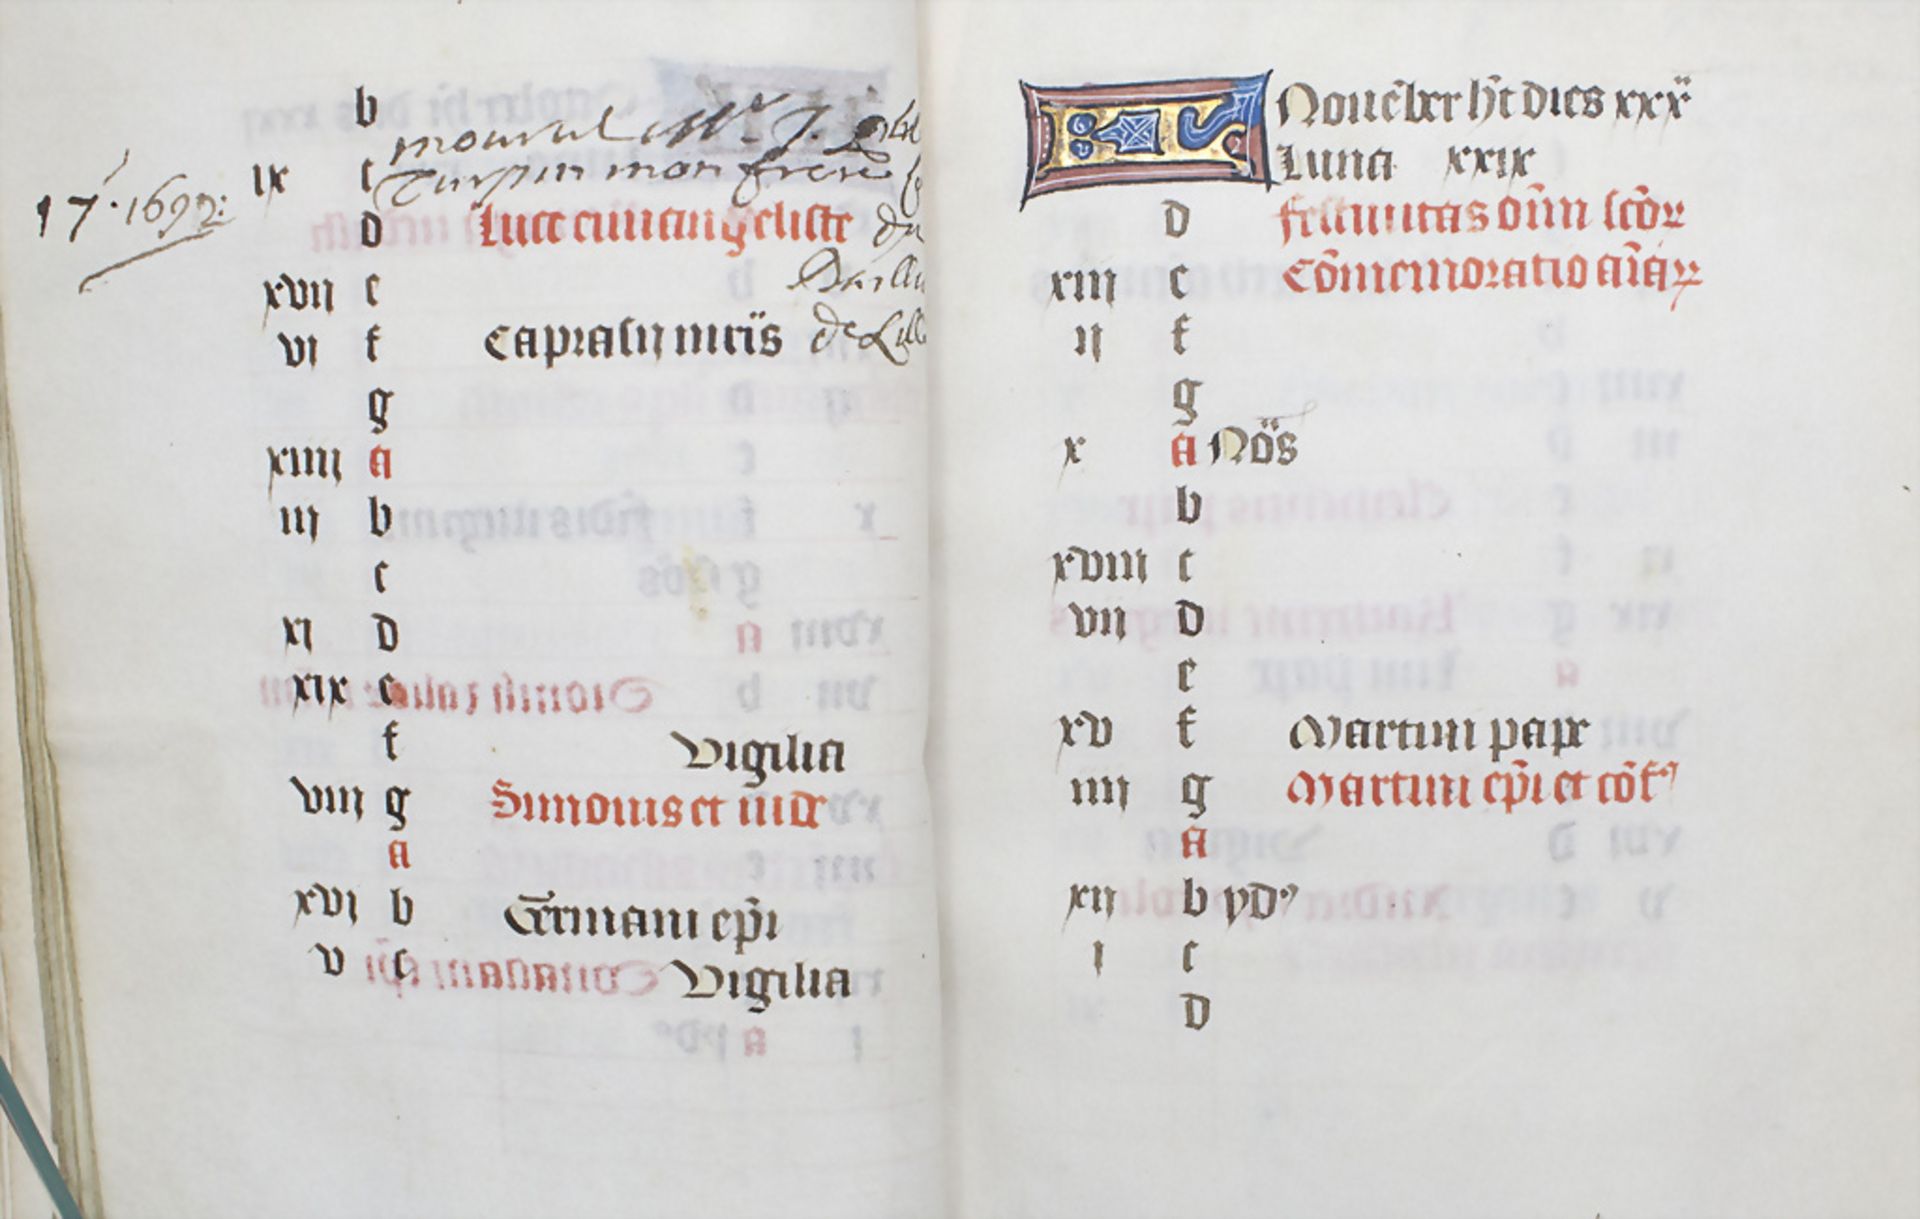 b
mourut Mr J.
ix c Turpin mon frere
17. 1692:
d Luce euuangeliste du
xvii e
vi f Caprasii mr̄is de Lill
g
xiiii A
iii b
c
xi d
xix e
f Vigilia
viii g Simonis et iude
A
xvi b Germani ep̄i
v c Vigilia
KL Nouēber ht̄ dies xxx
Luna xxix
d festiuitas oīm sc̄oꝝ
xiii e Cōmemoratio aīaꝝ
ii f
g
x A Nōs
b
xviii c
vii d
e
xv f Martini pape
iiii g Martini ep̄i et cōf
A
xii b ydꝰ
i c
d